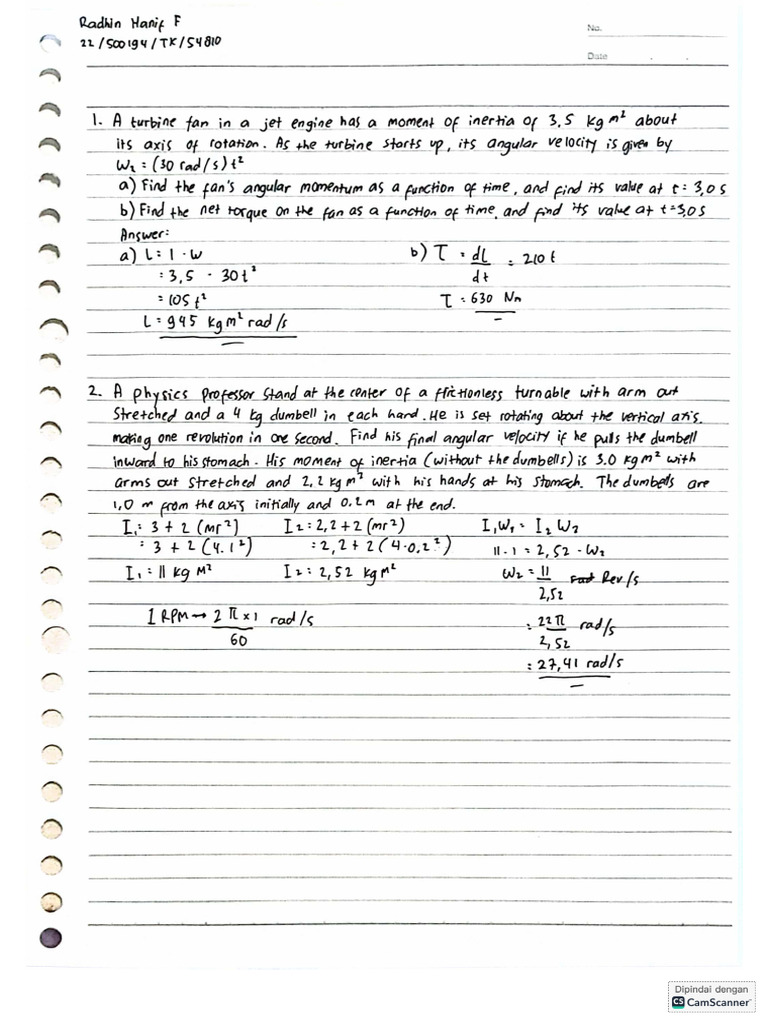 Radhin Hanif F
22/500194/TK/54810
No.
Date
1. A turbine fan in a jet engine has a moment of inertia of 3,5 kg m² about
its axis of rotation. As the turbine starts up, its angular velocity is given by
W₂ = (30 rad/s) t²
a) Find the fan's angular momentum as a function of time, and find its value at t = 3,0 s
b) Find the net torque on the fan as a function of time, and find its value at t = 3,0 s
Answer:
a) L = I . W
= 3,5 . 30t²
= 105 t²
L = 945 kg m² rad/s
b) τ = dL/dt = 210 t
τ = 630 Nm
2. A physics professor stand at the center of a frictionless turnable with arm out
stretched and a 4 kg dumbell in each hand. He is set rotating about the vertical axis,
making one revolution in one second. Find his final angular velocity if he pulls the dumbell
inward to his stomach. His moment of inertia (without the dumbells) is 3.0 kg m² with
arms out stretched and 2,2 kg m² with his hands at his stomach. The dumbells are
1,0 m from the axis initially and 0.2 m at the end.
I₁ = 3 + 2 (mr²)
= 3 + 2 (4.1²)
I₁ = 11 kg m²
I₂ = 2,2 + 2 (mr²)
= 2,2 + 2 (4.0.2²)
I₂ = 2,52 kg m²
I₁W₁ = I₂ W₂
11.1 = 2,52 . W₂
W₂ = 11/2,52 Rev/s
= 22π/2,52 rad/s
= 27,41 rad/s
1 RPM → 2π × 1/60 rad/s
Dipindai dengan
CS CamScanner